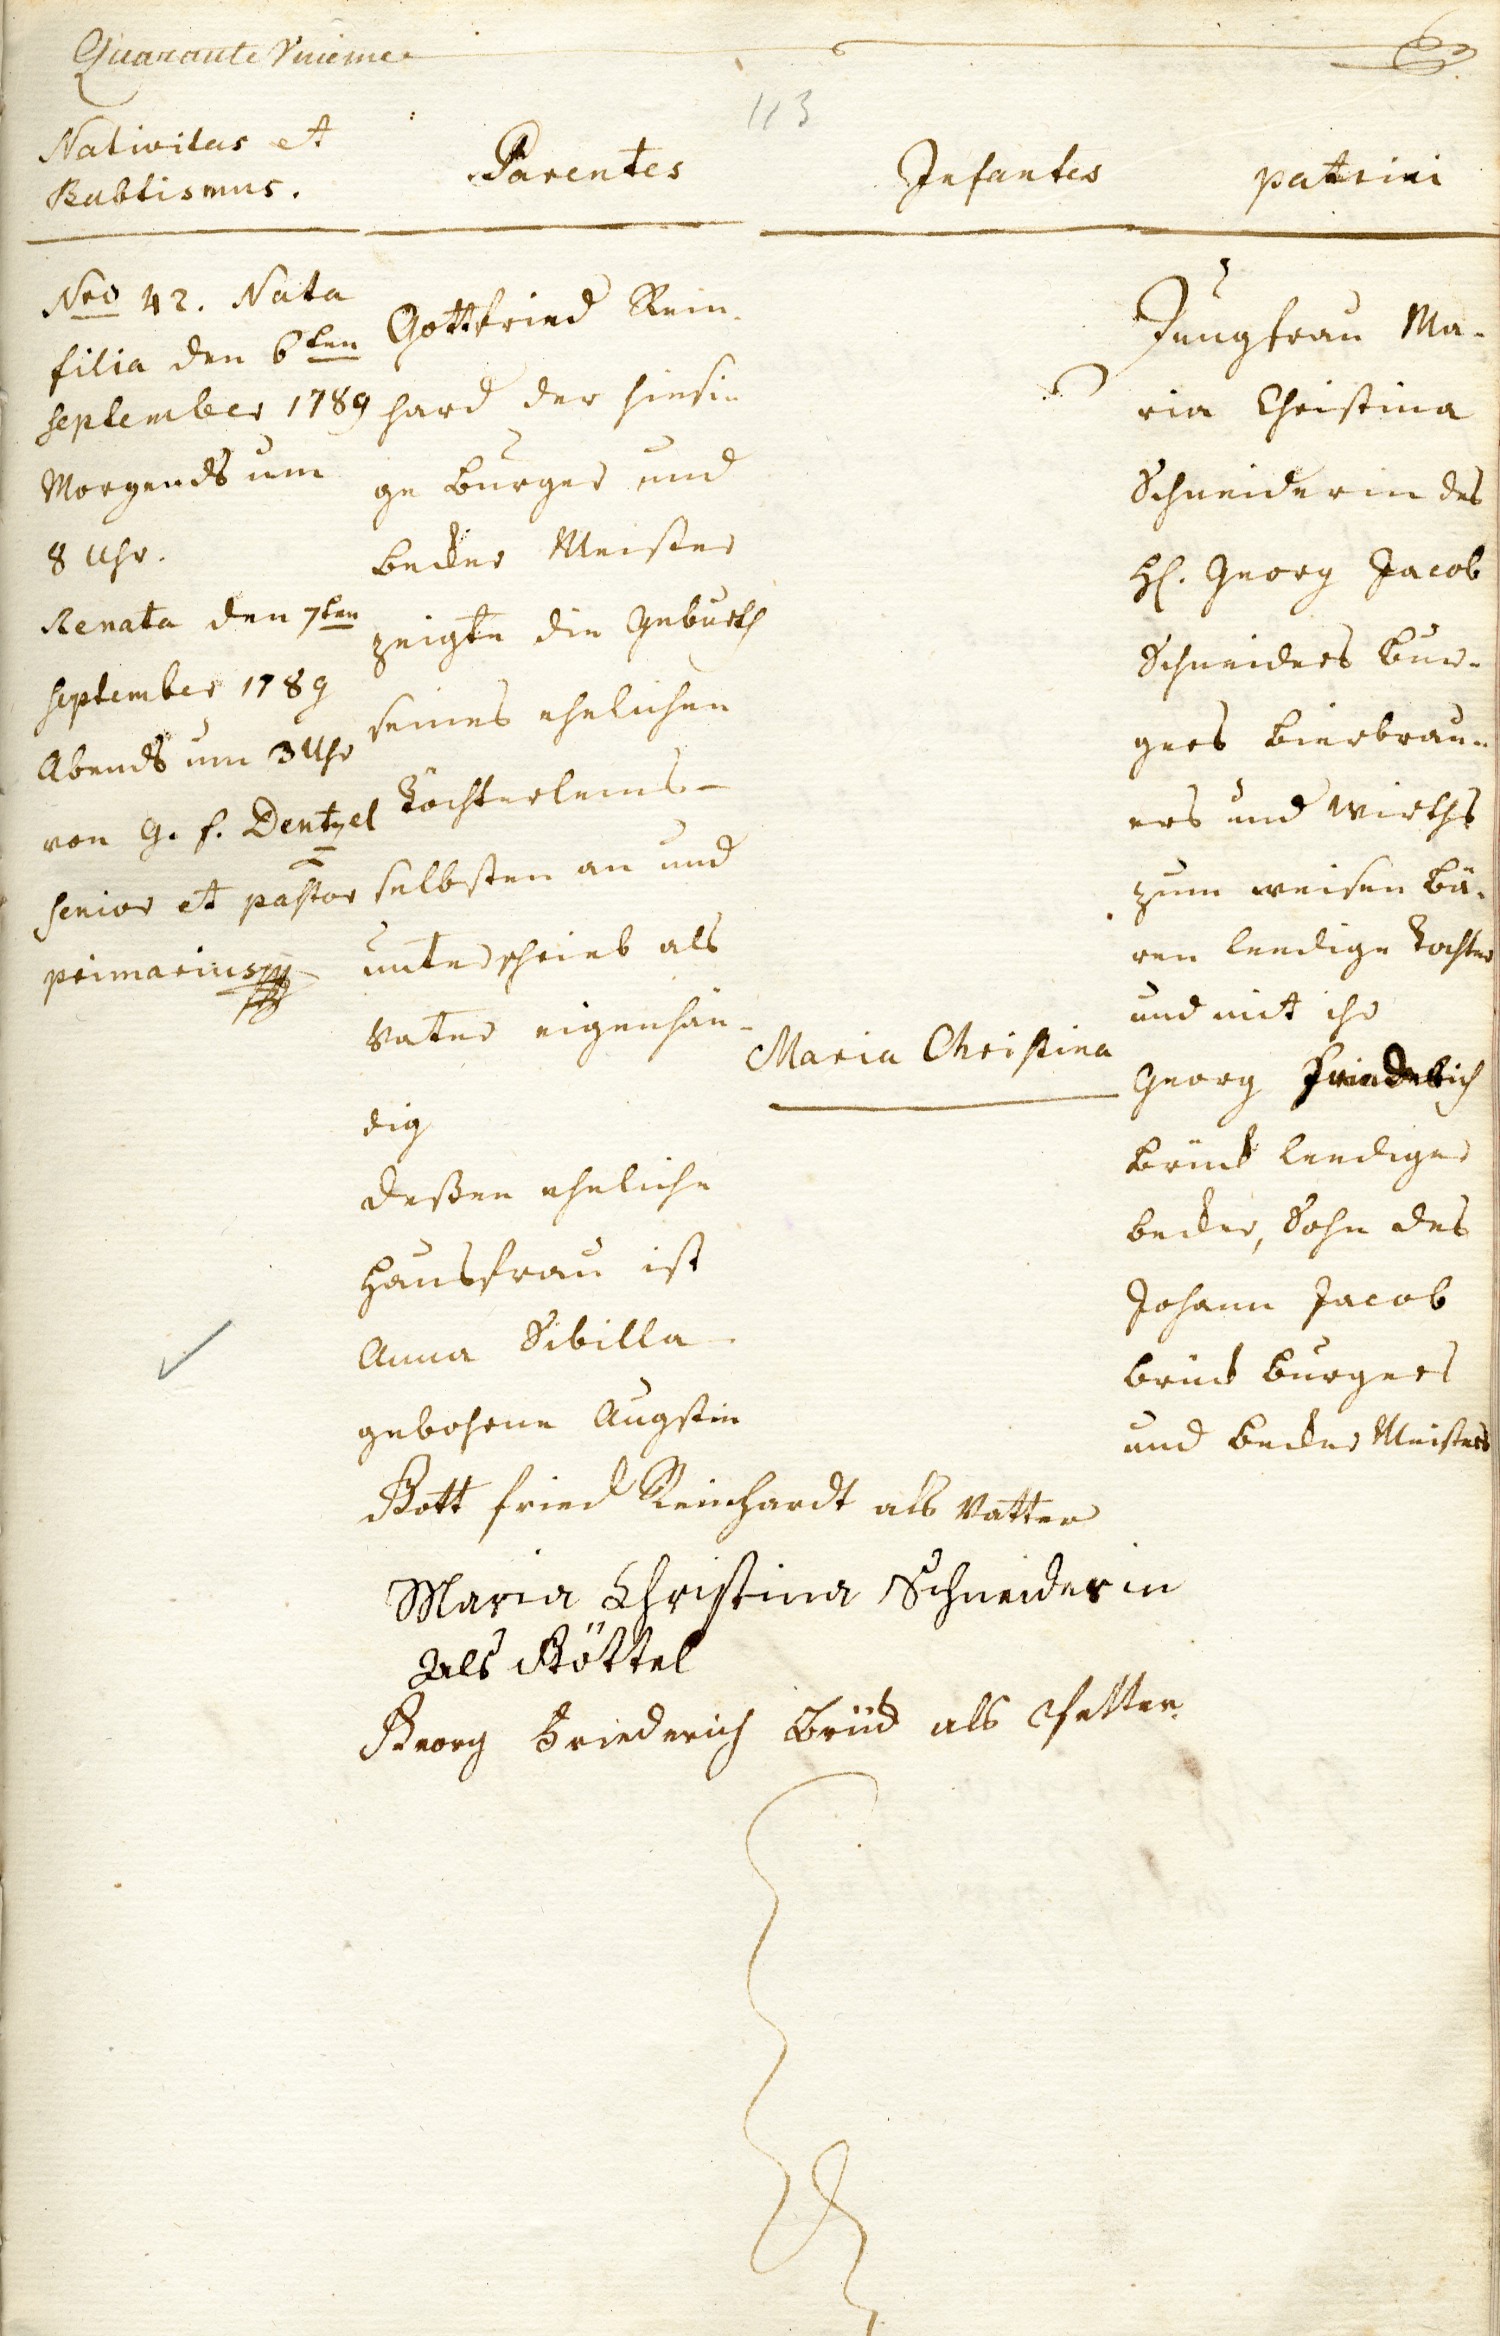 Quarante Unieme
113
Nativitas et
Babtismus.
Parentes
Infantes
patrini
Nro 42. Nata
filia den 6ten
September 1789
Morgends um
8 Uhr.
Renata den 7ten
September 1789
Abends um 3 Uhr
von G. f. Dentzel
senior et pastor
primarius
Gottfried Rein-
hard der hiesi-
ge burger und
becker Meister
zeigte die Geburth
seines ehelichen
Töchterleins
selbsten an und
unterschrieb als
Vater eigenhän-
dig
deßen eheliche
Hausfrau ist
Anna Sibilla
gebohrne Augstin
Maria Christina
Jungfrau Ma-
ria Christina
Schneiderin des
H. Georg Jacob
Schneiders bur-
gers bierbrau-
ers und wirths
zum weisen bä-
ren leedige Tochter
und mit ihr
Georg Friederich
brück leediger
becker, Sohn des
Johann Jacob
brück burgers
und becker Meisters
Gott fried Reinhardt als Vatter
Maria Christina Schneiderin
Als Göttel
Georg Friederich brück als Pfetter